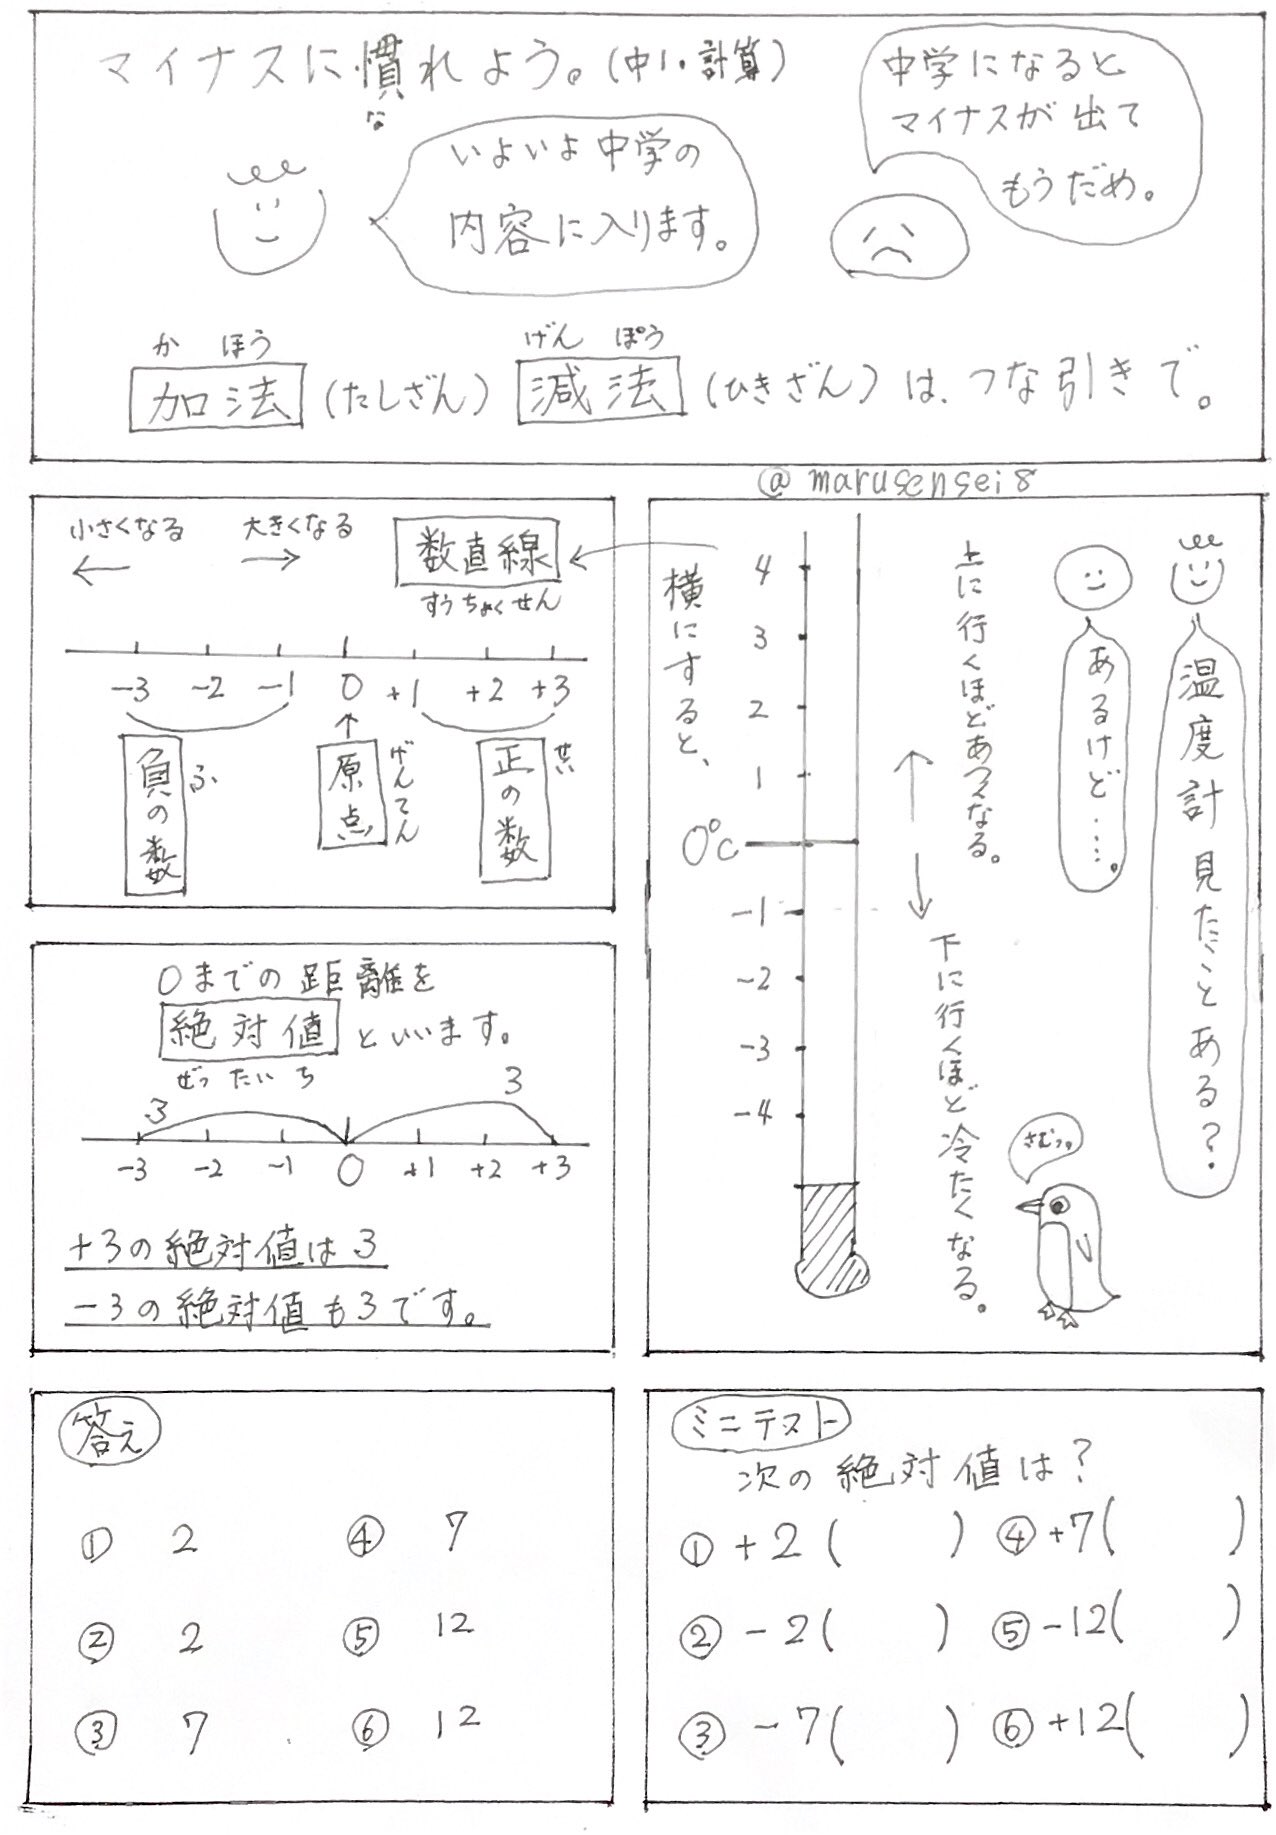 マイナスに慣れよう。(中1・計算)
な
いよいよ中学の
内容に入ります。
中学になると
マイナスが出て
もうだめ。
か ほう
げん ぽう
加法(たしざん) 減法(ひきざん)は、つな引きで。
@marusensei8
温度計見たことある?
あるけど……。
上に行くほどあつくなる。
下に行くほど冷たくなる。
さむっ。
4
3
2
1
0℃
-1
-2
-3
-4
横にすると、
小さくなる
←
大きくなる
→
数直線
すうちょくせん
-3 -2 -1 0 +1 +2 +3
↑
正の数
せい
原点
げんてん
負の数
ふ
0までの距離を
絶対値といいます。
ぜったいち
3 3
-3 -2 -1 0 +1 +2 +3
+3の絶対値は3
-3の絶対値も3です。
ミニテスト
次の絶対値は?
① +2( ) ④ +7( )
② -2( ) ⑤ -12( )
③ -7( ) ⑥ +12( )
答え
① 2 ④ 7
② 2 ⑤ 12
③ 7 ⑥ 12